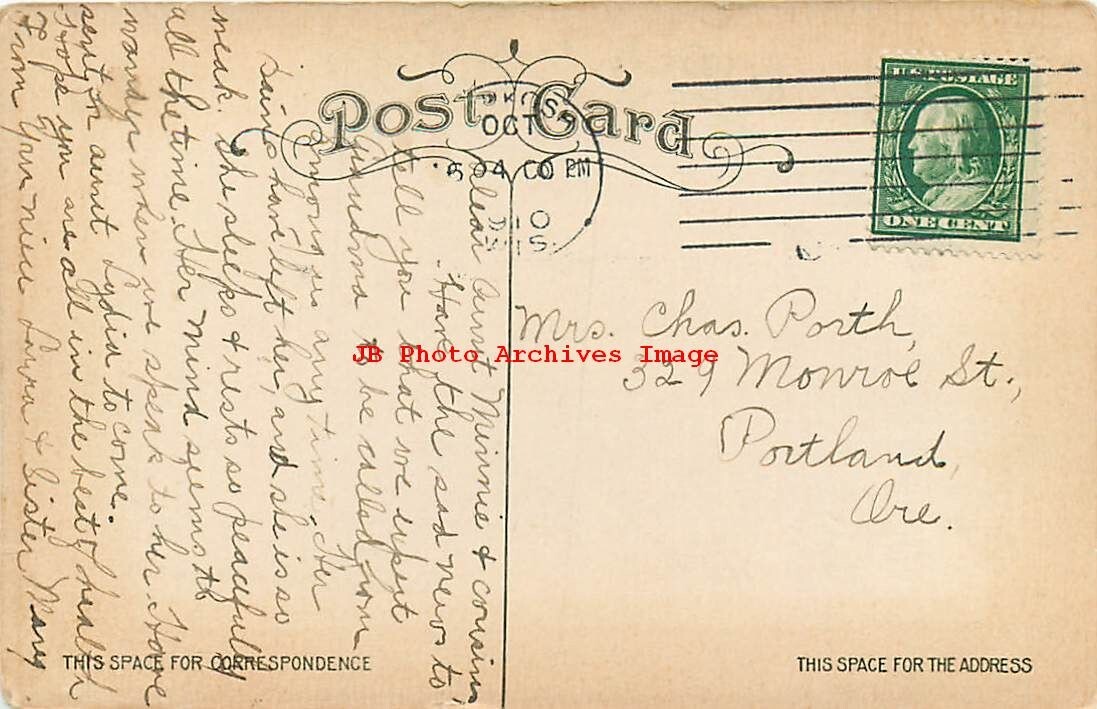 Post Card
OCT
4 00 PM
10
WIS.
U.S. POSTAGE
ONE CENT
Dear Aunt Minnie & cousins
Have the sad news to
tell you that we expect
Grandma to be called from
among us any time. Her
pains have left her, and she is so
weak. She sleeps & rests so peacefully
all the time. Her mind seems to
wander when we speak to her. Have
sent for aunt Lydia to come.
Hope you are all in the best of health
From Your niece Laura & Sister Mary.
Mrs. Chas. Porth,
329 Monroe St.,
Portland,
Ore.
JB Photo Archives Image
THIS SPACE FOR CORRESPONDENCE
THIS SPACE FOR THE ADDRESS